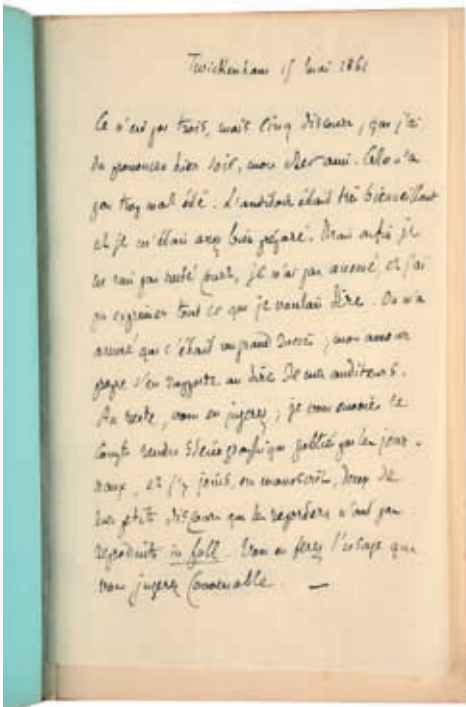 Twickenham 15 mai 1861
Ce n'est pas trois, mais cinq discours, que j'ai
du prononcer hier soir, mon cher ami. Cela n'a
pas trop mal été. L'auditoire était très bienveillant
et je m'étais assez bien préparé. Mais enfin je
ne suis pas resté court, je n'ai pas ânonné, et j'ai
pu exprimer tout ce que je voulais dire. On m'a
assuré que c'était un grand succès ; mon amour
propre s'en rapporte au dire de mes auditeurs.
Au reste, vous en jugerez ; je vous envoie le
compte rendu sténographique publié par les jour-
naux, et j'y joins, en manuscrit, deux de
mes petits discours que les reporters n'ont pas
reproduits in full. Vous en ferez l'usage que
vous jugerez convenable. —